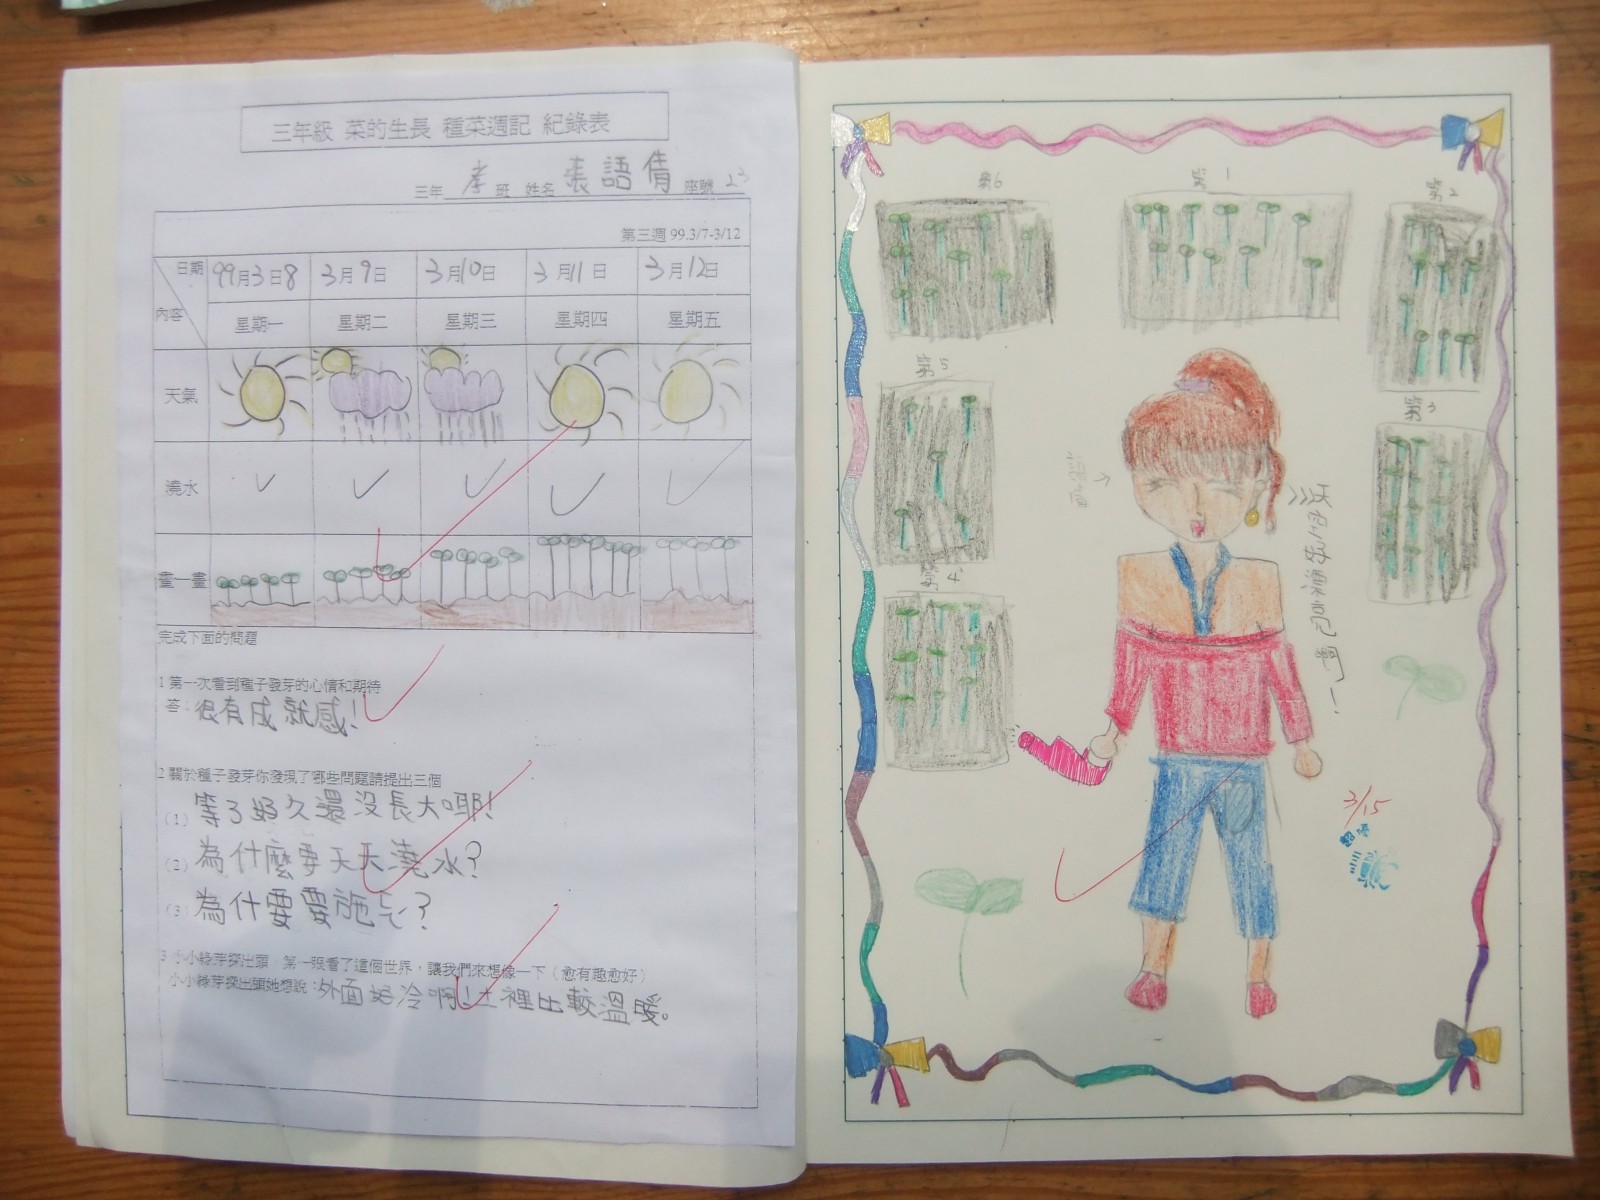 三年級 菜的生長 種菜週記 紀錄表
三年 孝 班 姓名 張語倩 座號 23
第三週 99.3/7-3/12
日期 99月3日8 3月9日 3月10日 3月11日 3月12日
內容 星期一 星期二 星期三 星期四 星期五
天氣
澆水
畫一畫
完成下面的問題
1 第一次看到種子發芽的心情和期待
答：很有成就感!
2 關於種子發芽你發現了哪些問題請提出三個
(1) 等了好久還沒長大耶!
(2) 為什麼要天天澆水?
(3) 為什要要施?
3 小小綠芽探出頭，第一眼看了這個世界，讓我們來想像一下（愈有趣愈好）
小小綠芽探出頭她想說：外面好冷啊!土裡比較溫暖。
第6
第1
第2
第5
第3
第4
好漂亮啊!
3/15